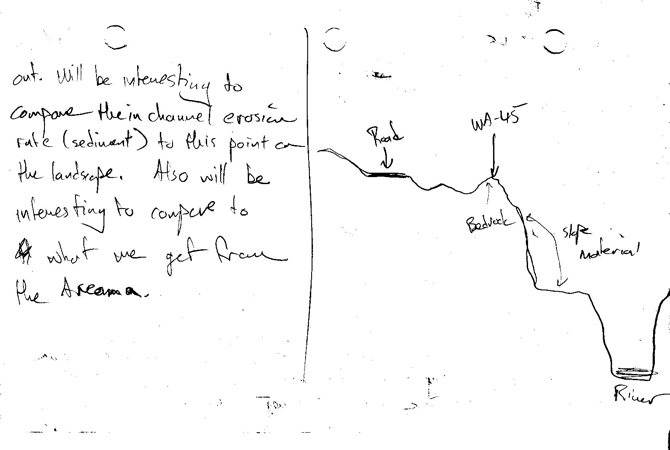 out. Will be interesting to
compare the in channel erosion
rate (sediment) to this point on
the landscape. Also will be
interesting to compare to
what we get from
the
Road
WA-45
Bedrock
slope
material
River